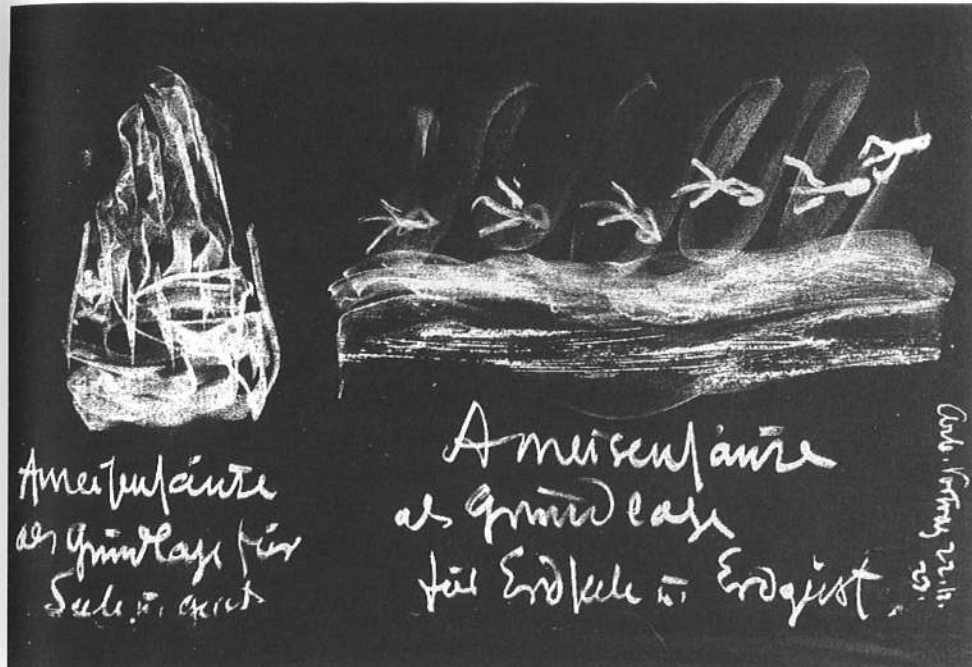 Ameisensäure
als Grundlage für
Seele u. Geist
Ameisensäure
als Grundlage
für Erdseele u. Erdgeist.
Arb. Vortrag 22.11.
23.